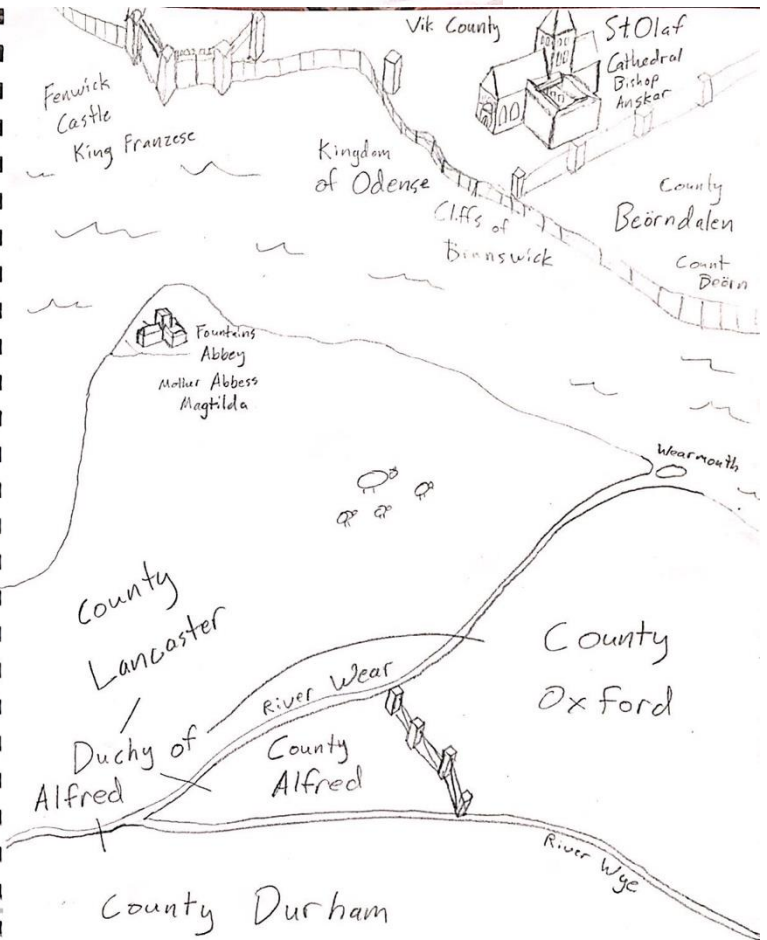 Vik County
St Olaf
Cathedral
Bishop
Anskar
Fenwick
Castle
King Franzese
Kingdom
of Odense
Cliffs of
Brunswick
County
Beörndalen
Count
Beörn
Fountains
Abbey
Mother Abbess
Magtilda
Wearmouth
County
Lancaster
County
Oxford
River Wear
Duchy of
Alfred
County
Alfred
River Wye
County Durham